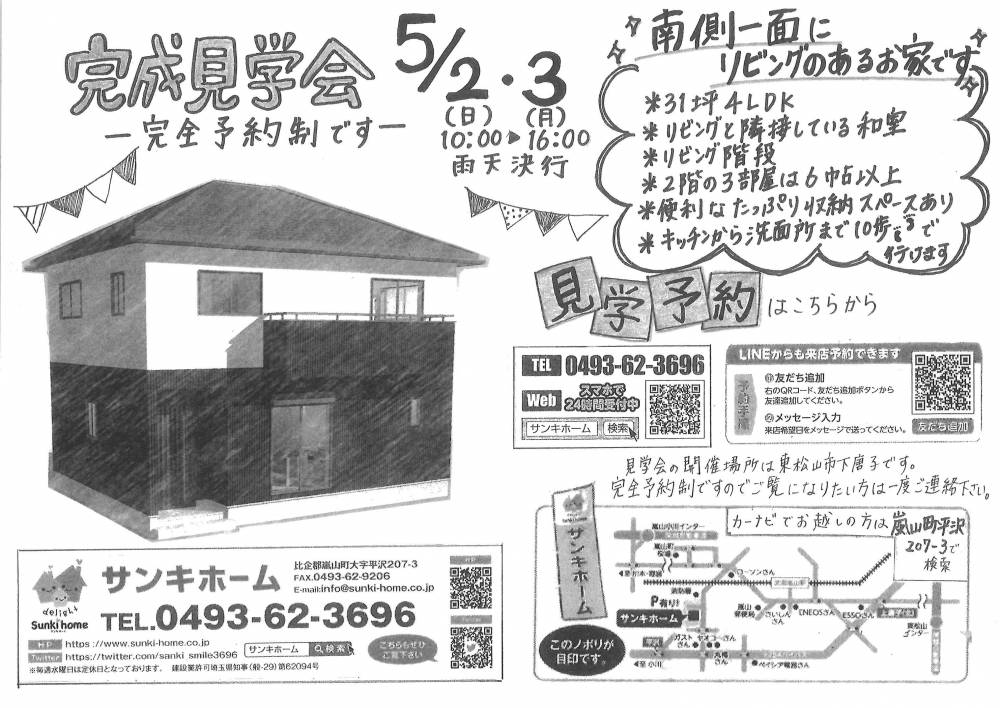 完成見学会
ー完全予約制ですー
5/2・3
(日) (月)
10:00▶16:00
雨天決行
南側一面に
リビングのあるお家です
*31坪4LDK
*リビングと隣接している和室
*リビング階段
*2階の3部屋は6帖以上
*便利なたっぷり収納スペースあり
*キッチンから洗面所まで10歩で
行けます
見学予約はこちらから
TEL 0493-62-3696
Web スマホで
24時間受付中
サンキホーム 検索
LINEからも来店予約できます
予約手順
①友だち追加
右のQRコード、友だち追加ボタンから
友達追加してください。
②メッセージ入力
来店希望日をメッセージで送ってください。
友だち追加
見学会の開催場所は東松山市下唐子です。
完全予約制ですのでご覧になりたい方は一度ご連絡下さい。
delight
Sunki home
サンキホーム
比企郡嵐山町大字平沢207-3
FAX.0493-62-9206
E-mail:info@sunki-home.co.jp
TEL.0493-62-3696
HP https://www.sunki-home.co.jp
Twitter https://twitter.com/sanki_smile3696
サンキホーム 検索
こちらもぜひ
ご覧下さい
※毎週水曜日は定休日となっております。 建設業許可埼玉県知事(般-29)第62094号
HP
Twitter
Sunki home
サンキホーム
このノボリが
目印です。
カーナビでお越しの方は嵐山町平沢
207-3で
検索
嵐山小川インター
嵐山町
役場
ローソンさん
武蔵嵐山駅
消防署
P有ります
サンキホーム
嵐山
郵便局
さいしん
さん
ENEOSさん
ESSOさん
東松山
インター
平沢
ガスト
さん
ヤオコーさん
丸梅
さん
ベイシア電器さん
至 小川